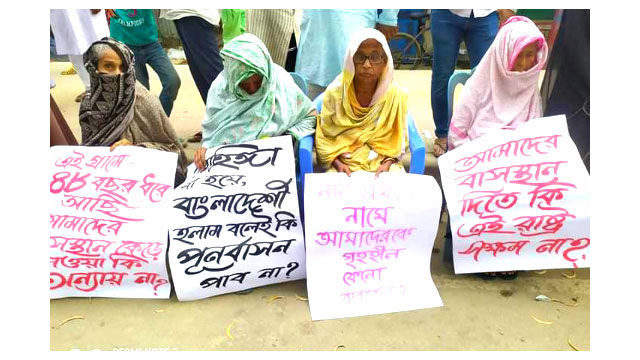 এই গ্রামে
৪৮ বছর ধরে
আছি
আমাদের
বাসস্থান কেড়ে
নেওয়া কি
অন্যায় না?
রোহিঙ্গা
না হয়ে,
বাংলাদেশী
হলাম বলেই কি
পূনর্বাসন
পাব না?
নামে
আমাদেরকে
গৃহহীন
কেনো
আমাদের
বাসস্থান
দিতে কি
এই রাষ্ট্র
সক্ষম না?